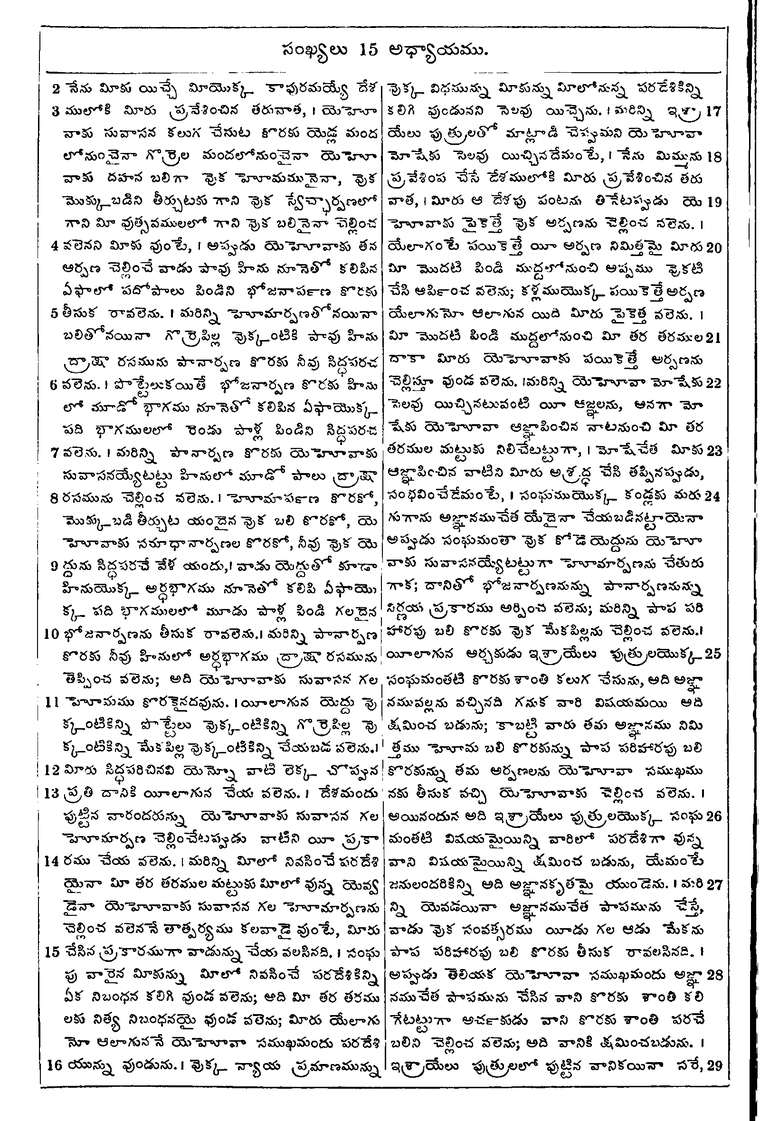 సంఖ్యలు 15 అధ్యాయము.
2 నేను మీకు యిచ్చే మీయొక్క కాపురమయ్యే దేశ
3 ములోకి మీరు ప్రవేశించిన తరువాత, । యెహోవా
వాకు సువాసన కలుగ చేసుట కొరకు యెడ్ల మంద
లోనుంచైనా గొర్రెల మందలోనుంచైనా యెహో
వాకు దహన బలిగా వొక హోమమునైనా, వొక
మొక్కుబడిని తీర్చుటకు గాని వొక స్వేచ్ఛార్పణలో
గాని మీ వుత్సవములలో గాని వొక బలినైనా చెల్లించ
4 వలెనని మీకు వుంటే, । అప్పుడు యెహోవాకు తన
అర్పణ చెల్లించే వాడు పావు హిను నూనెతో కలిపిన
ఏఫాలో పదోపాలు పిండిని భోజనార్పణ కొరకు
5 తీసుక రావలెను. । మరిన్ని హోమార్పణతోనయినా
బలితోనయినా గొర్రెపిల్ల వొక్కంటికి పావు హిను
ద్రాక్షా రసమును పానార్పణ కొరకు నీవు సిద్ధపరచ
6 వలెను. । పొట్టేలుకయితే భోజనార్పణ కొరకు హిను
లో మూడో భాగము నూనెతో కలిపిన ఏఫాయొక్క
పది భాగములలో రెండు పాళ్ల పిండిని సిద్ధపరచ
7 వలెను. । మరిన్ని పానార్పణ కొరకు యెహోవాకు
సువాసనయ్యేటట్టు హినులో మూడో పాలు ద్రాక్షా
8 రసమును చెల్లించ వలెను. । హోమార్పణ కొరకో,
మొక్కుబడి తీర్చుట యందైన వొక బలి కొరకో, యె
హోవాకు సమాధానార్పణల కొరకో, నీవు వొక యె
9 ద్దును సిద్ధపరచే వేళ యందు, । వాడు యెద్దుతో కూడా
హినుయొక్క అర్ధభాగము నూనెతో కలిపి ఏఫాయొ
క్క పది భాగములలో మూడు పాళ్ల పిండి గలదైన
10 భోజనార్పణను తీసుక రావలెను. । మరిన్ని పానార్పణ
కొరకు నీవు హినులో అర్ధభాగము ద్రాక్షా రసమును
తెప్పించ వలెను; అది యెహోవాకు సువాసన గల
11 హోమము కొరకైనదవును. । యీలాగున యెద్దు వొ
క్కంటికిన్ని పొట్టేలు వొక్కంటికిన్ని గొర్రెపిల్ల వొ
క్కంటికిన్ని మేకపిల్ల వొక్కంటికిన్ని చేయబడ వలెను. ।
12 మీరు సిద్ధపరిచినవి యెన్నో వాటి లెక్క చొప్పున
13 ప్రతి దానికి యీలాగున చేయ వలెను. । దేశమందు
పుట్టిన వారందరున్ను యెహోవాకు సువాసన గల
హోమార్పణ చెల్లించేటప్పుడు వాటిని యీ ప్రకా
14 రము చేయ వలెను. । మరిన్ని మీలో నివసించే పరదేశి
యైనా మీ తర తరముల మట్టుకు మీలో వున్న యెవ్వ
డైనా యెహోవాకు సువాసన గల హోమార్పణను
చెల్లించ వలెననే తాత్పర్యము కలవాడై వుంటే, మీరు
15 చేసిన ప్రకారముగా వాడున్ను చేయ వలసినది. । సంఘ
పు వారైన మీకున్ను మీలో నివసించే పరదేశికిన్ని
ఏక నిబంధన కలిగి వుండ వలెను; అది మీ తర తరము
లకు నిత్య నిబంధనయై వుండ వలెను; మీరు యేలాగు
నో ఆలాగుననే యెహోవా సముఖమందు పరదేశి
16 యున్ను వుండును. । వొక్క న్యాయ ప్రమాణమున్ను
వొక్క విధపున్ను మీకున్ను మీలోనున్న పరదేశికిన్ని
కలిగి వుండునని సెలవు యిచ్చెను. । మరిన్ని ఇశ్రా 17
యేలు పుత్రులతో మాట్లాడి చెప్పుమని యెహోవా
మోషేకు సెలవు యిచ్చినదేమంటే, । నేను మిమ్మును 18
ప్రవేశింప చేసే దేశములోకి మీరు ప్రవేశించిన తరు
వాత, । మీరు ఆ దేశపు పంటను తినేటప్పుడు యె 19
హోవాకు పైకెత్తే వొక అర్పణను చెల్లించ వలెను. ।
యేలాగంటే పయికెత్తే యీ అర్పణ నిమిత్తమై మీరు 20
మీ మొదటి పిండి ముద్దలోనుంచి అప్పము వొకటి
చేసి ఆర్పించ వలెను; కళ్లముయొక్క పయికెత్తే అర్పణ
యేలాగునో ఆలాగున యిది మీరు పైకెత్త వలెను. ।
మీ మొదటి పిండి ముద్దలోనుంచి మీ తర తరముల 21
దాకా మీరు యెహోవాకు పయికెత్తే అర్పణను
చెల్లిస్తూ వుండ వలెను. ।మరిన్ని యెహోవా మోషేకు 22
సెలవు యిచ్చినటువంటి యీ ఆజ్ఞలను, అనగా మో
షేకు యెహోవా ఆజ్ఞాపించిన నాటనుంచి మీ తర
తరముల మట్టుకు నిలిచేటట్టుగా, । మోషేచేత మీకు 23
ఆజ్ఞాపించిన వాటిని మీరు అశ్రద్ధ చేసి తప్పినప్పుడు,
సంభవించేదేమంటే, । సంఘముయొక్క కండ్లకు మరు 24
గుగాను అజ్ఞానముచేత యేదైనా చేయబడినట్టాయెనా
అప్పుడు సంఘమంతా వొక కోడె యెద్దును యెహో
వాకు సువాసనయ్యేటట్టుగా హోమార్పణను చేతురు
గాక; దానితో భోజనార్పణనున్ను పానార్పణనున్ను
నిర్ణయ ప్రకారము అర్పించ వలెను; మరిన్ని పాప పరి
హారపు బలి కొరకు వొక మేకపిల్లను చెల్లించ వలెను. ।
యీలాగున అర్చకుడు ఇశ్రాయేలు పుత్రులయొక్క 25
సంఘమంతటి కొరకు శాంతి కలుగ చేసును, అది అజ్ఞా
నమువల్లను వచ్చినది గనుక వారి విషయమయి అది
క్షమించ బడును; కాబట్టి వారు తమ అజ్ఞానము నిమి
త్తము హోమ బలి కొరకున్ను పాప పరిహారపు బలి
కొరకున్ను తమ అర్పణలను యెహోవా సముఖము
నకు తీసుక వచ్చి యెహోవాకు చెల్లించ వలెను. ।
అయినందున అది ఇశ్రాయేలు పుత్రులయొక్క సంఘ 26
మంతటి విషయమైయిన్ని వారిలో పరదేశిగా వున్న
వాని విషయమైయిన్ని క్షమించ బడును, యేమంటే
జనులందరికిన్ని అది అజ్ఞానకృతమై యుండెను. । మరి 27
న్ని యెవడయినా అజ్ఞానముచేత పాపమును చేస్తే,
వాడు వొక సంవత్సరము యీడు గల ఆడు మేకను
పాప పరిహారపు బలి కొరకు తీసుక రావలసినది. ।
అప్పుడు తెలియక యెహోవా సముఖమందు అజ్ఞా 28
నముచేత పాపమును చేసిన వాని కొరకు శాంతి కలి
గేటట్టుగా అర్చకుడు వాని కొరకు శాంతి పరచే
బలిని చెల్లించ వలెను; అది వానికి క్షమించబడును. ।
ఇశ్రాయేలు పుత్రులలో పుట్టిన వానికయినా సరే, 29